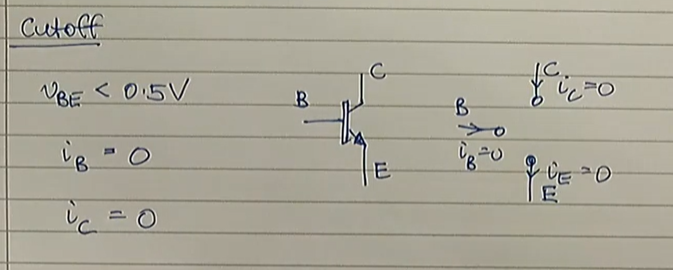 Cutoff
v_BE < 0.5V
i_B = 0
i_C = 0
B
C
E
B
i_B=0
C
i_C=0
i_E=0
E